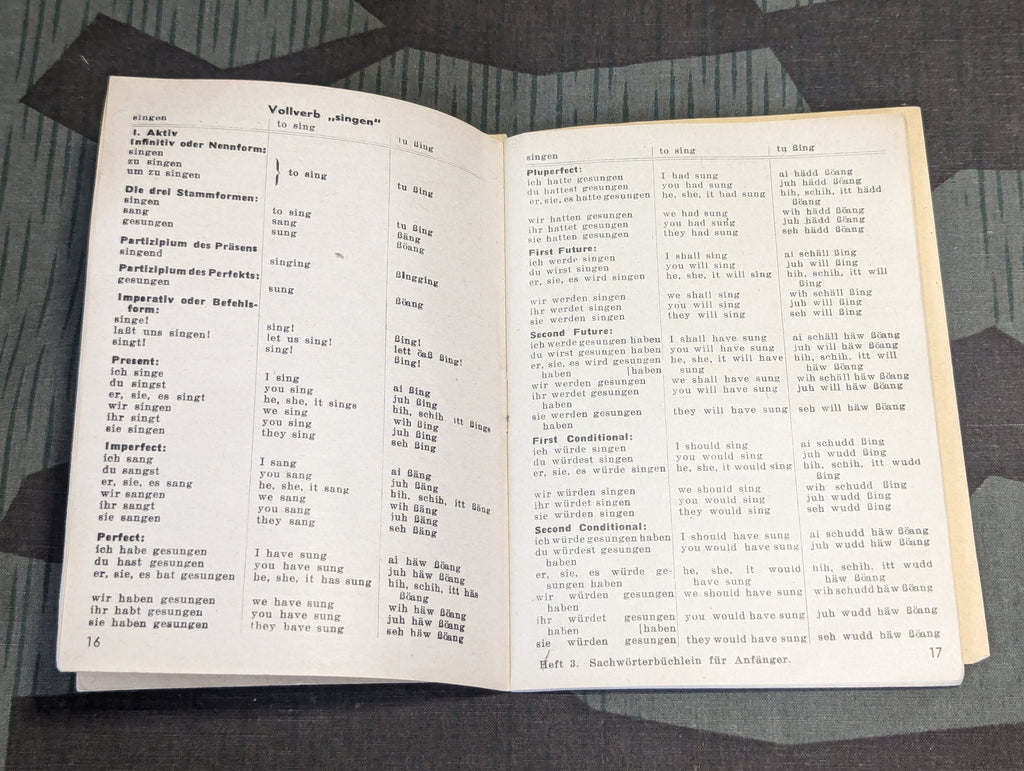 Vollverb „singen“
singen to sing tu ßing
I. Aktiv
Infinitiv oder Nennform:
singen
zu singen } to sing tu ßing
um zu singen
Die drei Stammformen:
singen to sing tu ßing
sang sang ßäng
gesungen sung ßöang
Partizipium des Präsens
singend singing ßingging
Partizipium des Perfekts:
gesungen sung ßöang
Imperativ oder Befehls-
form:
singe! sing! ßing!
laßt uns singen! let us sing! lett öaß ßing!
singt! sing! ßing!
Present:
ich singe I sing ai ßing
du singst you sing juh ßing
er, sie, es singt he, she, it sings hih, schih, itt ßings
wir singen we sing wih ßing
ihr singt you sing juh ßing
sie singen they sing seh ßing
Imperfect:
ich sang I sang ai ßäng
du sangst you sang juh ßäng
er, sie, es sang he, she, it sang hih, schih, itt ßäng
wir sangen we sang wih ßäng
ihr sangt you sang juh ßäng
sie sangen they sang seh ßäng
Perfect:
ich habe gesungen I have sung ai häw ßöang
du hast gesungen you have sung juh häw ßöang
er, sie, es hat gesungen he, she, it has sung hih, schih, itt häs
ßöang
wir haben gesungen we have sung wih häw ßöang
ihr habt gesungen you have sung juh häw ßöang
sie haben gesungen they have sung seh häw ßöang
16
singen to sing tu ßing
Pluperfect:
ich hatte gesungen I had sung ai hädd ßöang
du hattest gesungen you had sung juh hädd ßöang
er, sie, es hatte gesungen he, she, it had sung hih, schih, itt hädd
ßöang
wir hatten gesungen we had sung wih hädd ßöang
ihr hattet gesungen you had sung juh hädd ßöang
sie hatten gesungen they had sung seh hädd ßöang
First Future:
ich werde singen I shall sing ai schäll ßing
du wirst singen you will sing juh will ßing
er, sie, es wird singen he, she, it will sing hih, schih, itt will
ßing
wir werden singen we shall sing wih schäll ßing
ihr werdet singen you will sing juh will ßing
sie werden singen they will sing seh will ßing
Second Future:
ich werde gesungen haben I shall have sung ai schäll häw ßöang
du wirst gesungen haben you will have sung juh will häw ßöang
er, sie, es wird gesungen he, she, it will have hih, schih, itt will
[haben sung häw ßöang
wir werden gesungen we shall have sung wih schäll häw ßöang
ihr werdet gesungen you will have sung juh will häw ßöang
haben
sie werden gesungen they will have sung seh will häw ßöang
haben
First Conditional:
ich würde singen I should sing ai schudd ßing
du würdest singen you would sing juh wudd ßing
er, sie, es würde singen he, she, it would sing hih, schih, itt wudd
ßing
wir würden singen we should sing wih schudd ßing
ihr würdet singen you would sing juh wudd ßing
sie würden singen they would sing seh wudd ßing
Second Conditional:
ich würde gesungen haben I should have sung ai schudd häw ßöang
du würdest gesungen you would have sung juh wudd häw ßöang
haben
er, sie, es würde ge- he, she, it would hih, schih, itt wudd
sungen haben have sung häw ßöang
wir würden gesungen we should have sung wih schudd häw ßöang
haben
ihr würdet gesungen you would have sung juh wudd häw ßöang
haben [haben
sie würden gesungen they would have sung seh wudd häw ßöang
Heft 3. Sachwörterbüchlein für Anfänger.
17